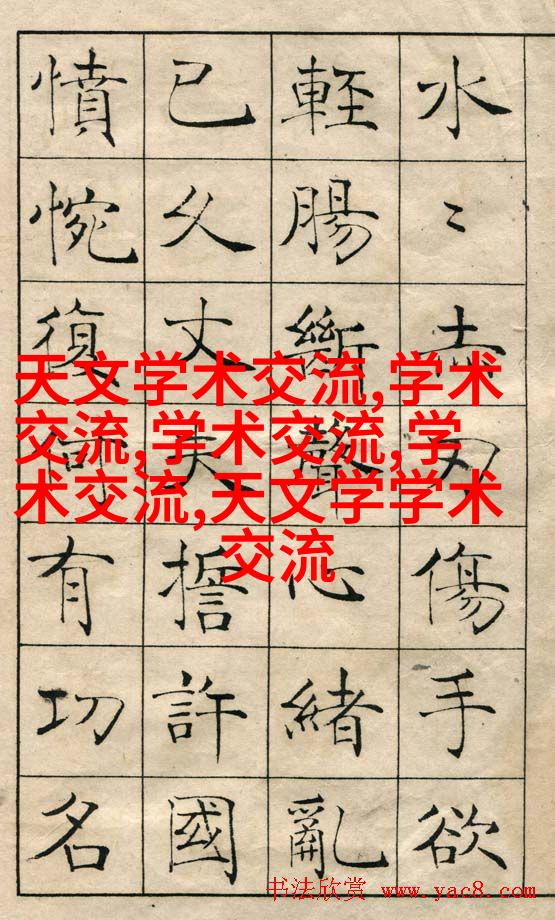 水〻赤刃傷手欲
輕腸斷聲心緒亂
已久丈夫誓許國
憤惋復何有功名
天文学术交流,学术
交流,学术交流,学
术交流,天文学学术
交流
书法欣赏 www.yac8.com